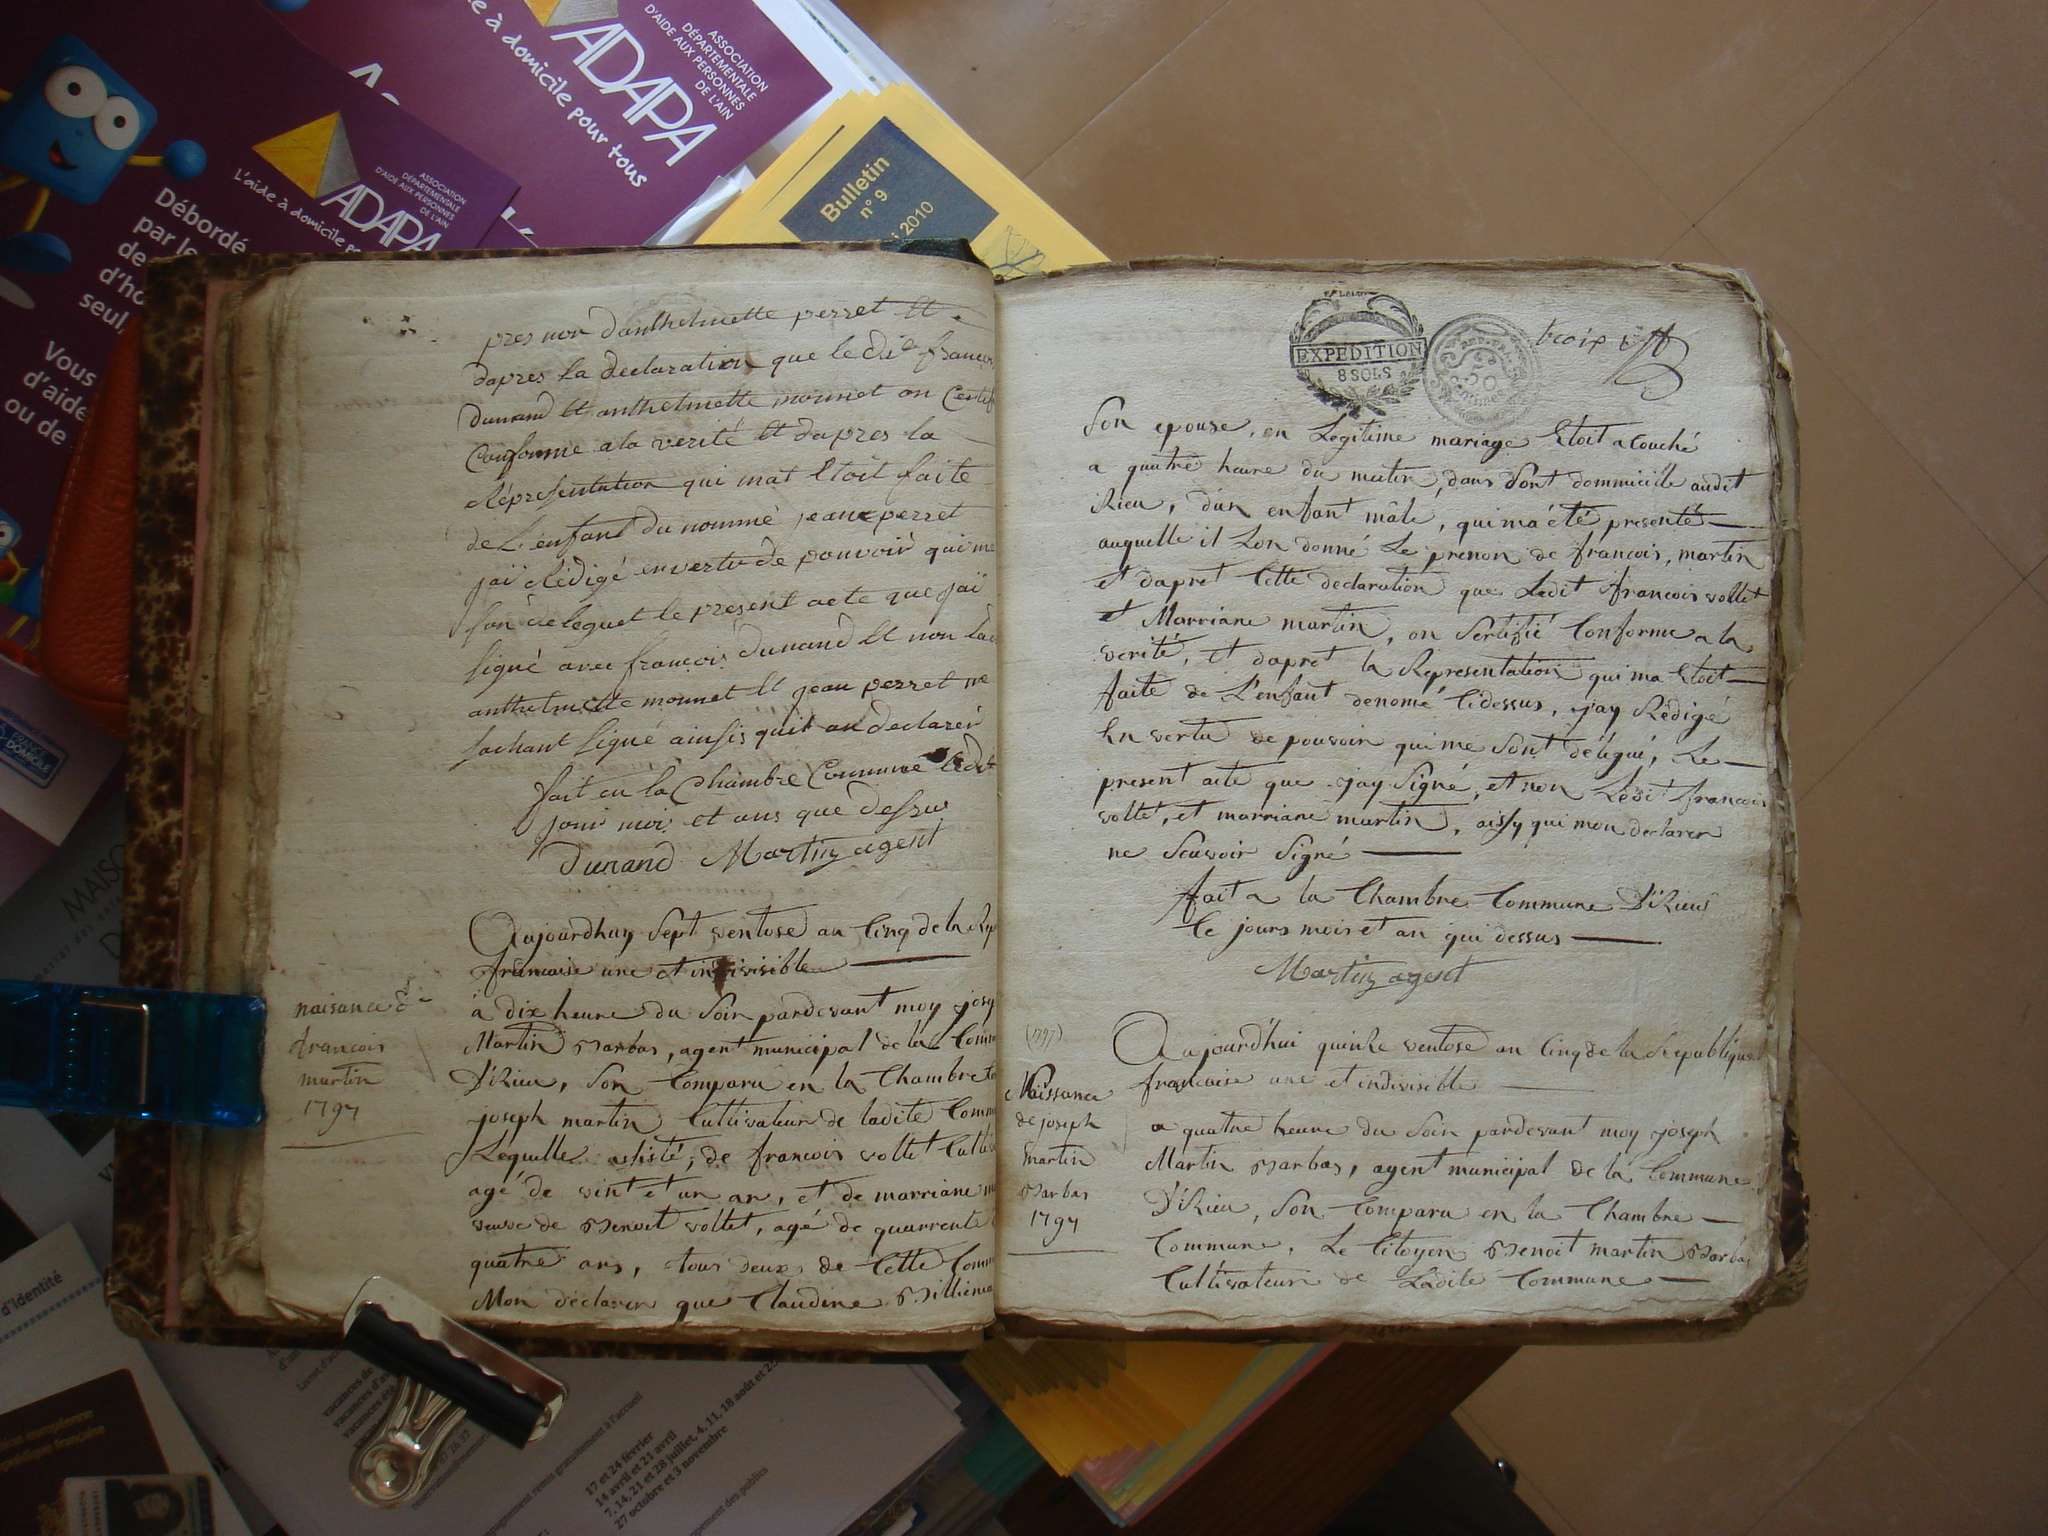 ASSOCIATION
DÉPARTEMENTALE
D'AIDE AUX PERSONNES
DE L'AIN
ADAPA
à domicile pour tous
ASSOCIATION
DÉPARTEMENTALE
D'AIDE AUX PERSONNES
DE L'AIN
ADAPA
L'aide à domicile po
Débordé
par le
de
d'ho
seul,
Vous
d'aide
ou de
Bulletin
n° 9
2010
FRANCE
DOMICILE
MAISO
d'identité
17 et 24 février
14 avril et 21 avril
7, 14, 21 et 28 juillet, 4, 11, 18 août et 25
27 octobre et 3 novembre
pres nom danthelmette perret Et
dapres la declaration que le dit francois
dunand Et anthelmette monnet on Certif
Conforme a la verité Et dapres la
Répresentation qui mat Etoit faite
de L'enfant du nommé jean perret
jaï Rédigé en vertu de pouvoir qui me
son deleguet le present acte que jaï
signé avec francois dunand Et non la
anthelmette monnet Et jean perret ne
sachant signé ainsis quit on declarér
fait en la Chambre Commune ledit
jour mois et ans que dessus
Dunand Martin agent
Aujourdhuy Sept ventose an Cinq de la Rep
francaise une et indivisible
naisance de
francois
martin
1797
à dix heure du Soir pardevant moy jose
Martin Barbas, agent municipal de la Comm
D'Rieu, Son Comparu en la Chambre Co
joseph martin Cultivateur de ladite Comm
Lequelle assisté, de francois vollet Culti
agé de vint et un an, et de marriane m
veuve de Benoit vollet, agé de quarrente
quatre ans, tous deux de Cette Comm
Mon déclarer que Claudine Billiema
EXPEDITION
8 SOLS
REP. FRA.
50
centimes
troix
Son epouse, en Legitime mariage Etoit acouché
a quatre heure du matin, dans Sont dommicille audit
Rieu, dun enfant mâle, qui ma été presenté
auquelle il Lon donné Le prenon de francois, martin
et dapret Cette declaration que Ledit francois vollet
et Marriane martin, on Sertifié Conforme a la
verité, et dapret la Representation qui ma Etoit
faite de L'enfant denomé Cidessus, jay Redigé
En vertu de pouvoir qui me Sont délégué, Le
present acte que jay Signé, et non Ledit francois
vollet, et marriane martin, aissy qui mon declarer
ne Scavoir Signé
fait a la Chambre Commune D'Rieu
Ce jours mois et an qui dessus
Martin agent
(1797)
Naissance
de joseph
Martin
Barbas
1797
Aujourd'hui quinze ventose an Cinq de la Republique
francaise une et indivisible
a quatre heure du Soir pardevant moy joseph
Martin Barbas, agent municipal de la Commune
D'Rieu, Son Comparu en la Chambre
Commune, Le Citoyen Benoit martin Barbas
Cultivateur de Ladite Commune